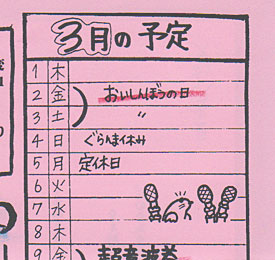 3月の予定
1 木
2 金 おいしんぼうの日
3 土 〃
4 日 ぐらんま休み
5 月 定休日
6 火
7 水
8 木
9 金